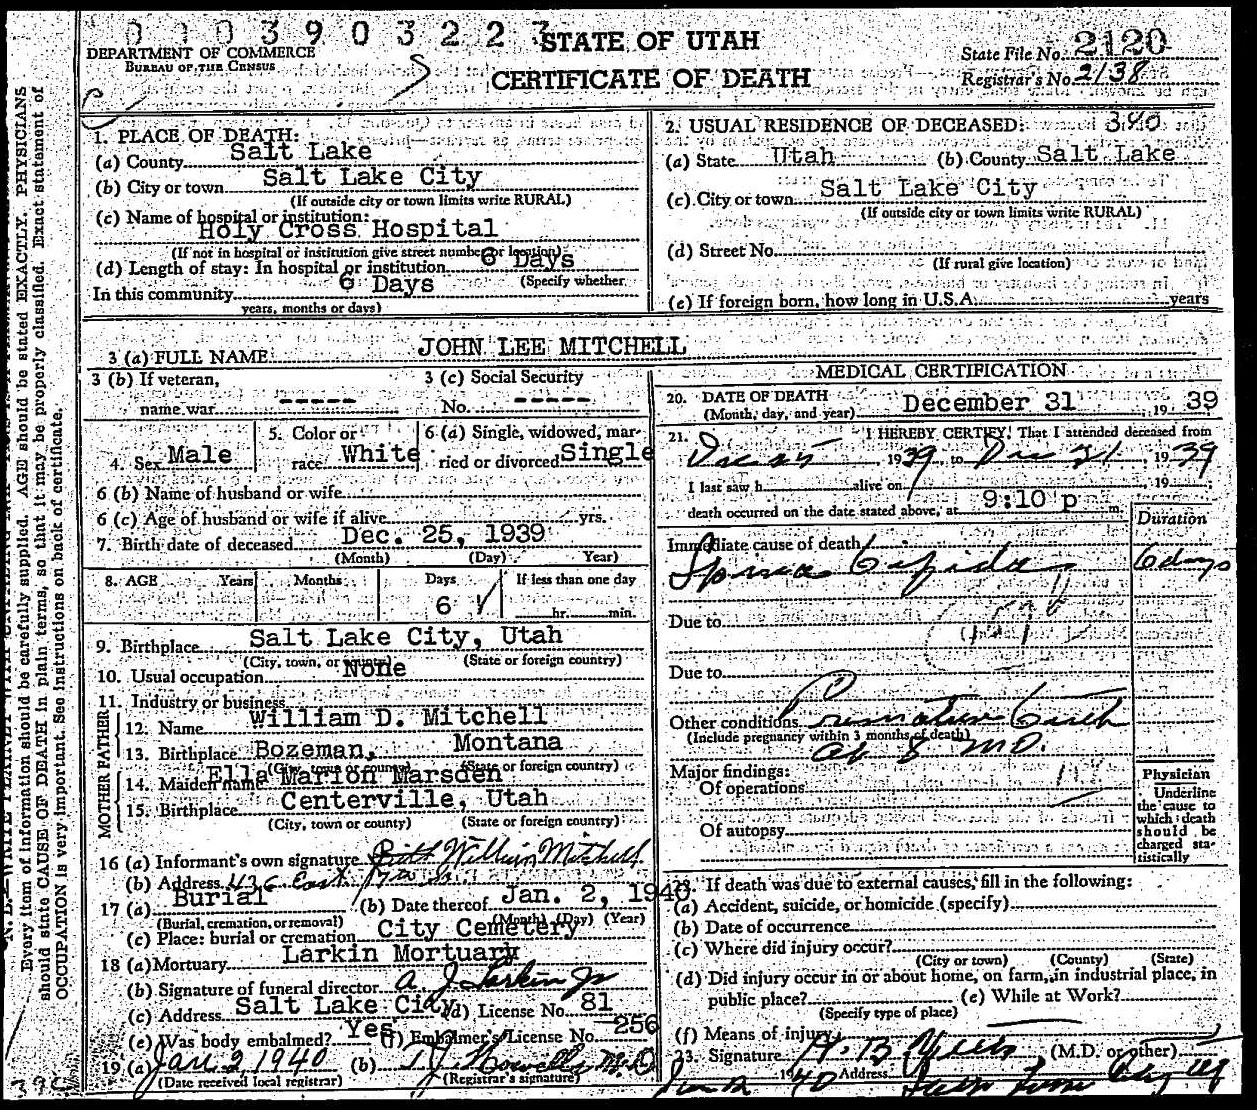 0003903223
DEPARTMENT OF COMMERCE
BUREAU OF THE CENSUS
STATE OF UTAH
CERTIFICATE OF DEATH
State File No. 2120
Registrar's No. 2138
1. PLACE OF DEATH:
(a) County Salt Lake
(b) City or town Salt Lake City
(If outside city or town limits write RURAL)
(c) Name of hospital or institution:
Holy Cross Hospital
(If not in hospital or institution give street number or location)
(d) Length of stay: In hospital or institution 6 Days
(Specify whether
In this community 6 Days
years, months or days)
2. USUAL RESIDENCE OF DECEASED: 340
(a) State Utah (b) County Salt Lake
(c) City or town Salt Lake City
(If outside city or town limits write RURAL)
(d) Street No.
(If rural give location)
(e) If foreign born, how long in U.S.A. years
3 (a) FULL NAME JOHN LEE MITCHELL
3 (b) If veteran, name war -----
3 (c) Social Security No. -----
4. Sex Male
5. Color or race White
6 (a) Single, widowed, married or divorced Single
6 (b) Name of husband or wife
6 (c) Age of husband or wife if alive yrs.
7. Birth date of deceased Dec. 25, 1939
(Month) (Day) Year)
8. AGE Years Months Days If less than one day
6 hr. min.
9. Birthplace Salt Lake City, Utah
(City, town, or county) (State or foreign country)
10. Usual occupation None
11. Industry or business
FATHER
12. Name William D. Mitchell
13. Birthplace Bozeman, Montana
(City, town or county) (State or foreign country)
MOTHER
14. Maiden name Ella Marion Marsden
15. Birthplace Centerville, Utah
(City, town or county) (State or foreign country)
16 (a) Informant's own signature William Mitchell
(b) Address 436 East 17th So.
17 (a) Burial (b) Date thereof Jan. 2, 1940
(Burial, cremation, or removal) (Month) (Day) (Year)
(c) Place: burial or cremation City Cemetery
18 (a) Mortuary Larkin Mortuary
(b) Signature of funeral director A J Larkin Jr
(c) Address Salt Lake City (d) License No. 81
(e) Was body embalmed? Yes (f) Embalmer's License No. 256
19 (a) Jan. 2, 1940 (b) T. J. Howells M.D.
(Date received local registrar) (Registrar's signature)
MEDICAL CERTIFICATION
20. DATE OF DEATH
(Month, day, and year) December 31, 1939
21. I HEREBY CERTIFY, That I attended deceased from
Dec 25, 1939 to Dec 31, 1939
I last saw h alive on , 19 ;
death occurred on the date stated above, at 9:10 p m.
Duration
Immediate cause of death
Spina Bifida 6 days
Due to
157
Due to
Other conditions Premature birth
(Include pregnancy within 3 months of death)
8 mo.
Major findings:
Of operations
Of autopsy
Physician
Underline the cause to which death should be charged statistically
22. If death was due to external causes, fill in the following:
(a) Accident, suicide, or homicide (specify)
(b) Date of occurrence
(c) Where did injury occur?
(City or town) (County) (State)
(d) Did injury occur in or about home, on farm, in industrial place, in
public place? (e) While at Work?
(Specify type of place)
(f) Means of injury
23. Signature (M.D. or other)
Jan 2 1940 Address Salt Lake City Ut
Every item of information should be carefully supplied. AGE should be stated EXACTLY. PHYSICIANS
should state CAUSE OF DEATH in plain terms, so that it may be properly classified. Exact statement of
OCCUPATION is very important. See instructions on back of certificate.